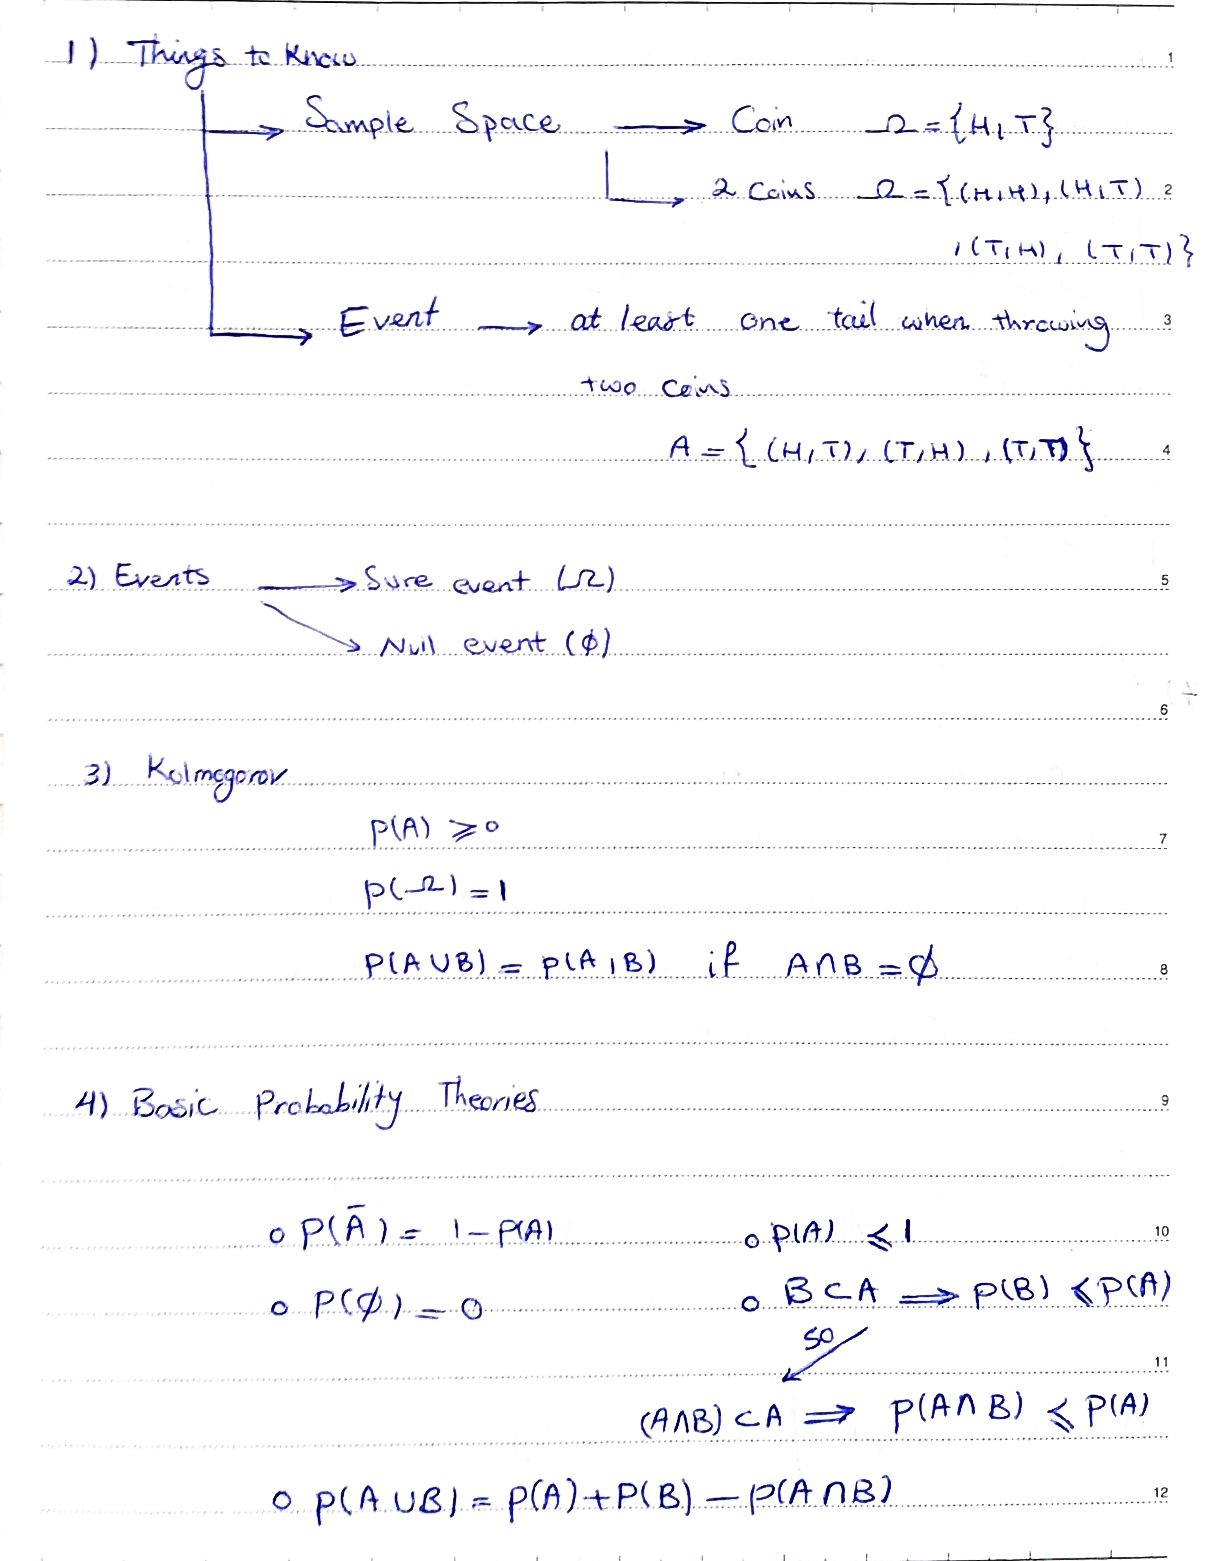 1) Things to Know
1
Sample Space → Coin Ω = {H, T}
2 Coins Ω = {(H,H), (H,T)
2
, (T,H), (T,T)}
Event → at least one tail when throwing
3
two coins
A = { (H,T), (T,H), (T,T) }
4
2) Events → Sure event (Ω)
5
Null event (∅)
6
3) Kolmogorov
P(A) ⩾ 0
7
P(Ω) = 1
P(A∪B) = P(A,B) if A∩B = ∅
8
4) Basic Probability Theories
9
o P(Ā) = 1 - P(A) o P(A) ⩽ 1
10
o P(∅) = 0 o B ⊂ A ⟹ P(B) ⩽ P(A)
so
11
(A∩B) ⊂ A ⟹ P(A∩B) ⩽ P(A)
o P(A∪B) = P(A) + P(B) - P(A∩B)
12